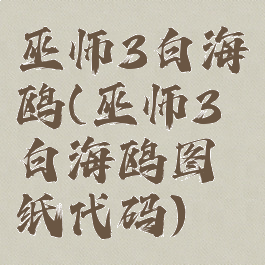 巫师3白海
鸥(巫师3
白海鸥图
纸代码)